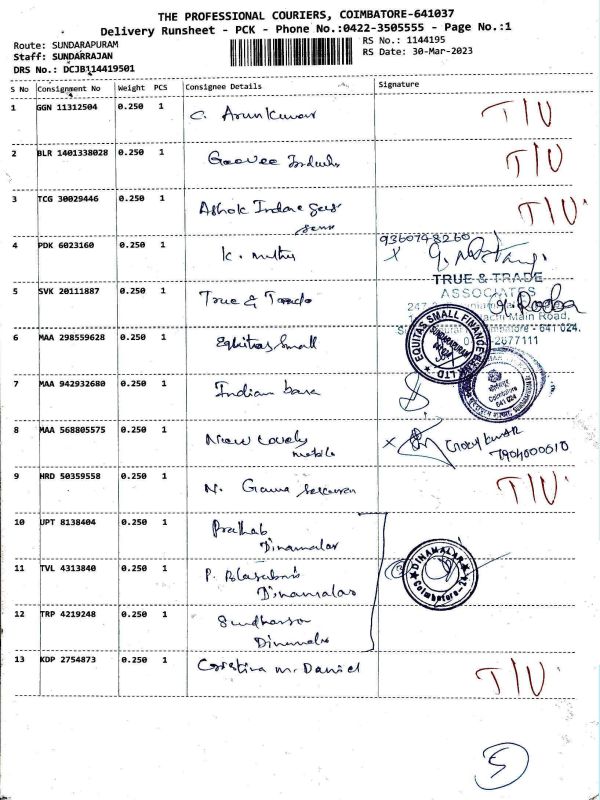 THE PROFESSIONAL COURIERS, COIMBATORE-641037
Delivery Runsheet - PCK - Phone No.:0422-3505555 - Page No.:1
Route: SUNDARAPURAM
RS No.: 1144195
Staff: SUNDARRAJAN
RS Date: 30-Mar-2023
DRS No.: DCJB114419501
S No Consignment No Weight PCS Consignee Details Signature
1 GGN 11312504 0.250 1 C. Arunkumar T/U
2 BLR 1401338028 0.250 1 T/U
3 TCG 30029446 0.250 1 Ashok Indane gas T/U
4 PDK 6023160 0.250 1 K. muthu 9360748260 x
TRUE & TRADE
ASSOCIATES
5 SVK 20111887 0.250 1 True & Trade
Main Road,
- 641 024.
6 MAA 298559628 0.250 1 Equitas Small EQUITAS SMALL FINANCE BANK LTD
SUNDARAPURAM
7 MAA 942932680 0.250 1 Indian bank
Coimbatore
641 024
8 MAA 568805575 0.250 1 New Lovely x
mobile 7904000610
9 HRD 50359558 0.250 1 N. T/U
10 UPT 8138404 0.250 1 Prathab
Dinamalar
11 TVL 4313840 0.250 1 P. DINAMALAR Coimbatore-24
Dinamalar
12 TRP 4219248 0.250 1
Dinamalar
13 KDP 2754873 0.250 1 Cristina M. Daniel T/U
5